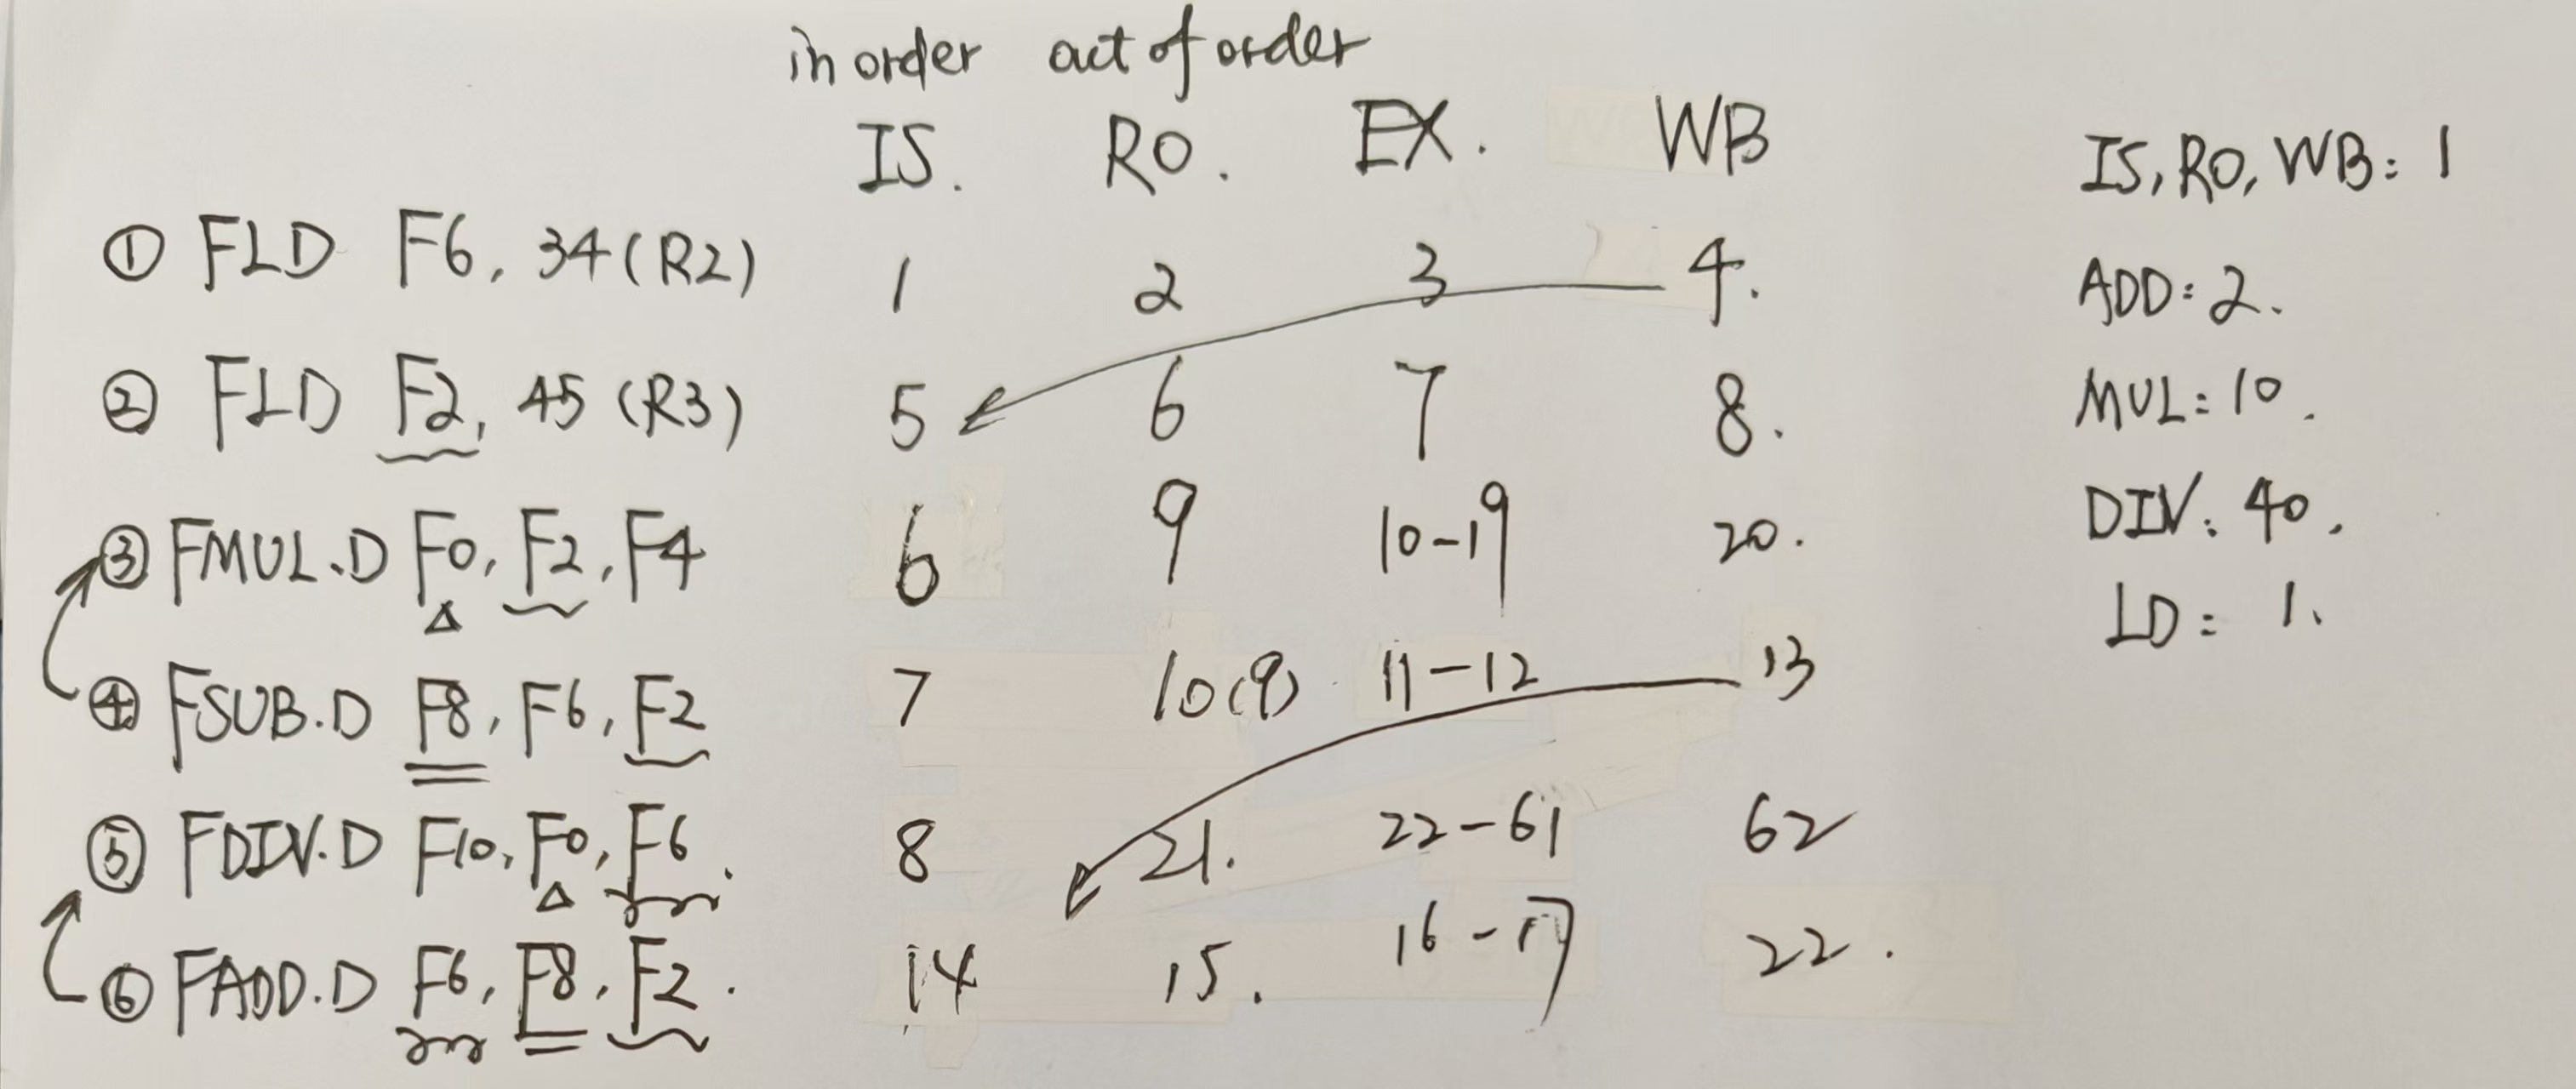 in order act of order
IS. RO. EX. WB
IS, RO, WB: 1
① FLD F6, 34(R2) 1 2 3 4.
ADD: 2.
② FLD F2, 45 (R3) 5 6 7 8.
MUL: 10.
③ FMUL.D F0, F2, F4 6 9 10-19 20.
DIV: 40.
LD: 1.
④ FSUB.D F8, F6, F2 7 10(9) 11-12 13
⑤ FDIV.D F10, F0, F6. 8 21. 22-61 62
⑥ FADD.D F6, F8, F2. 14 15. 16-17 22.